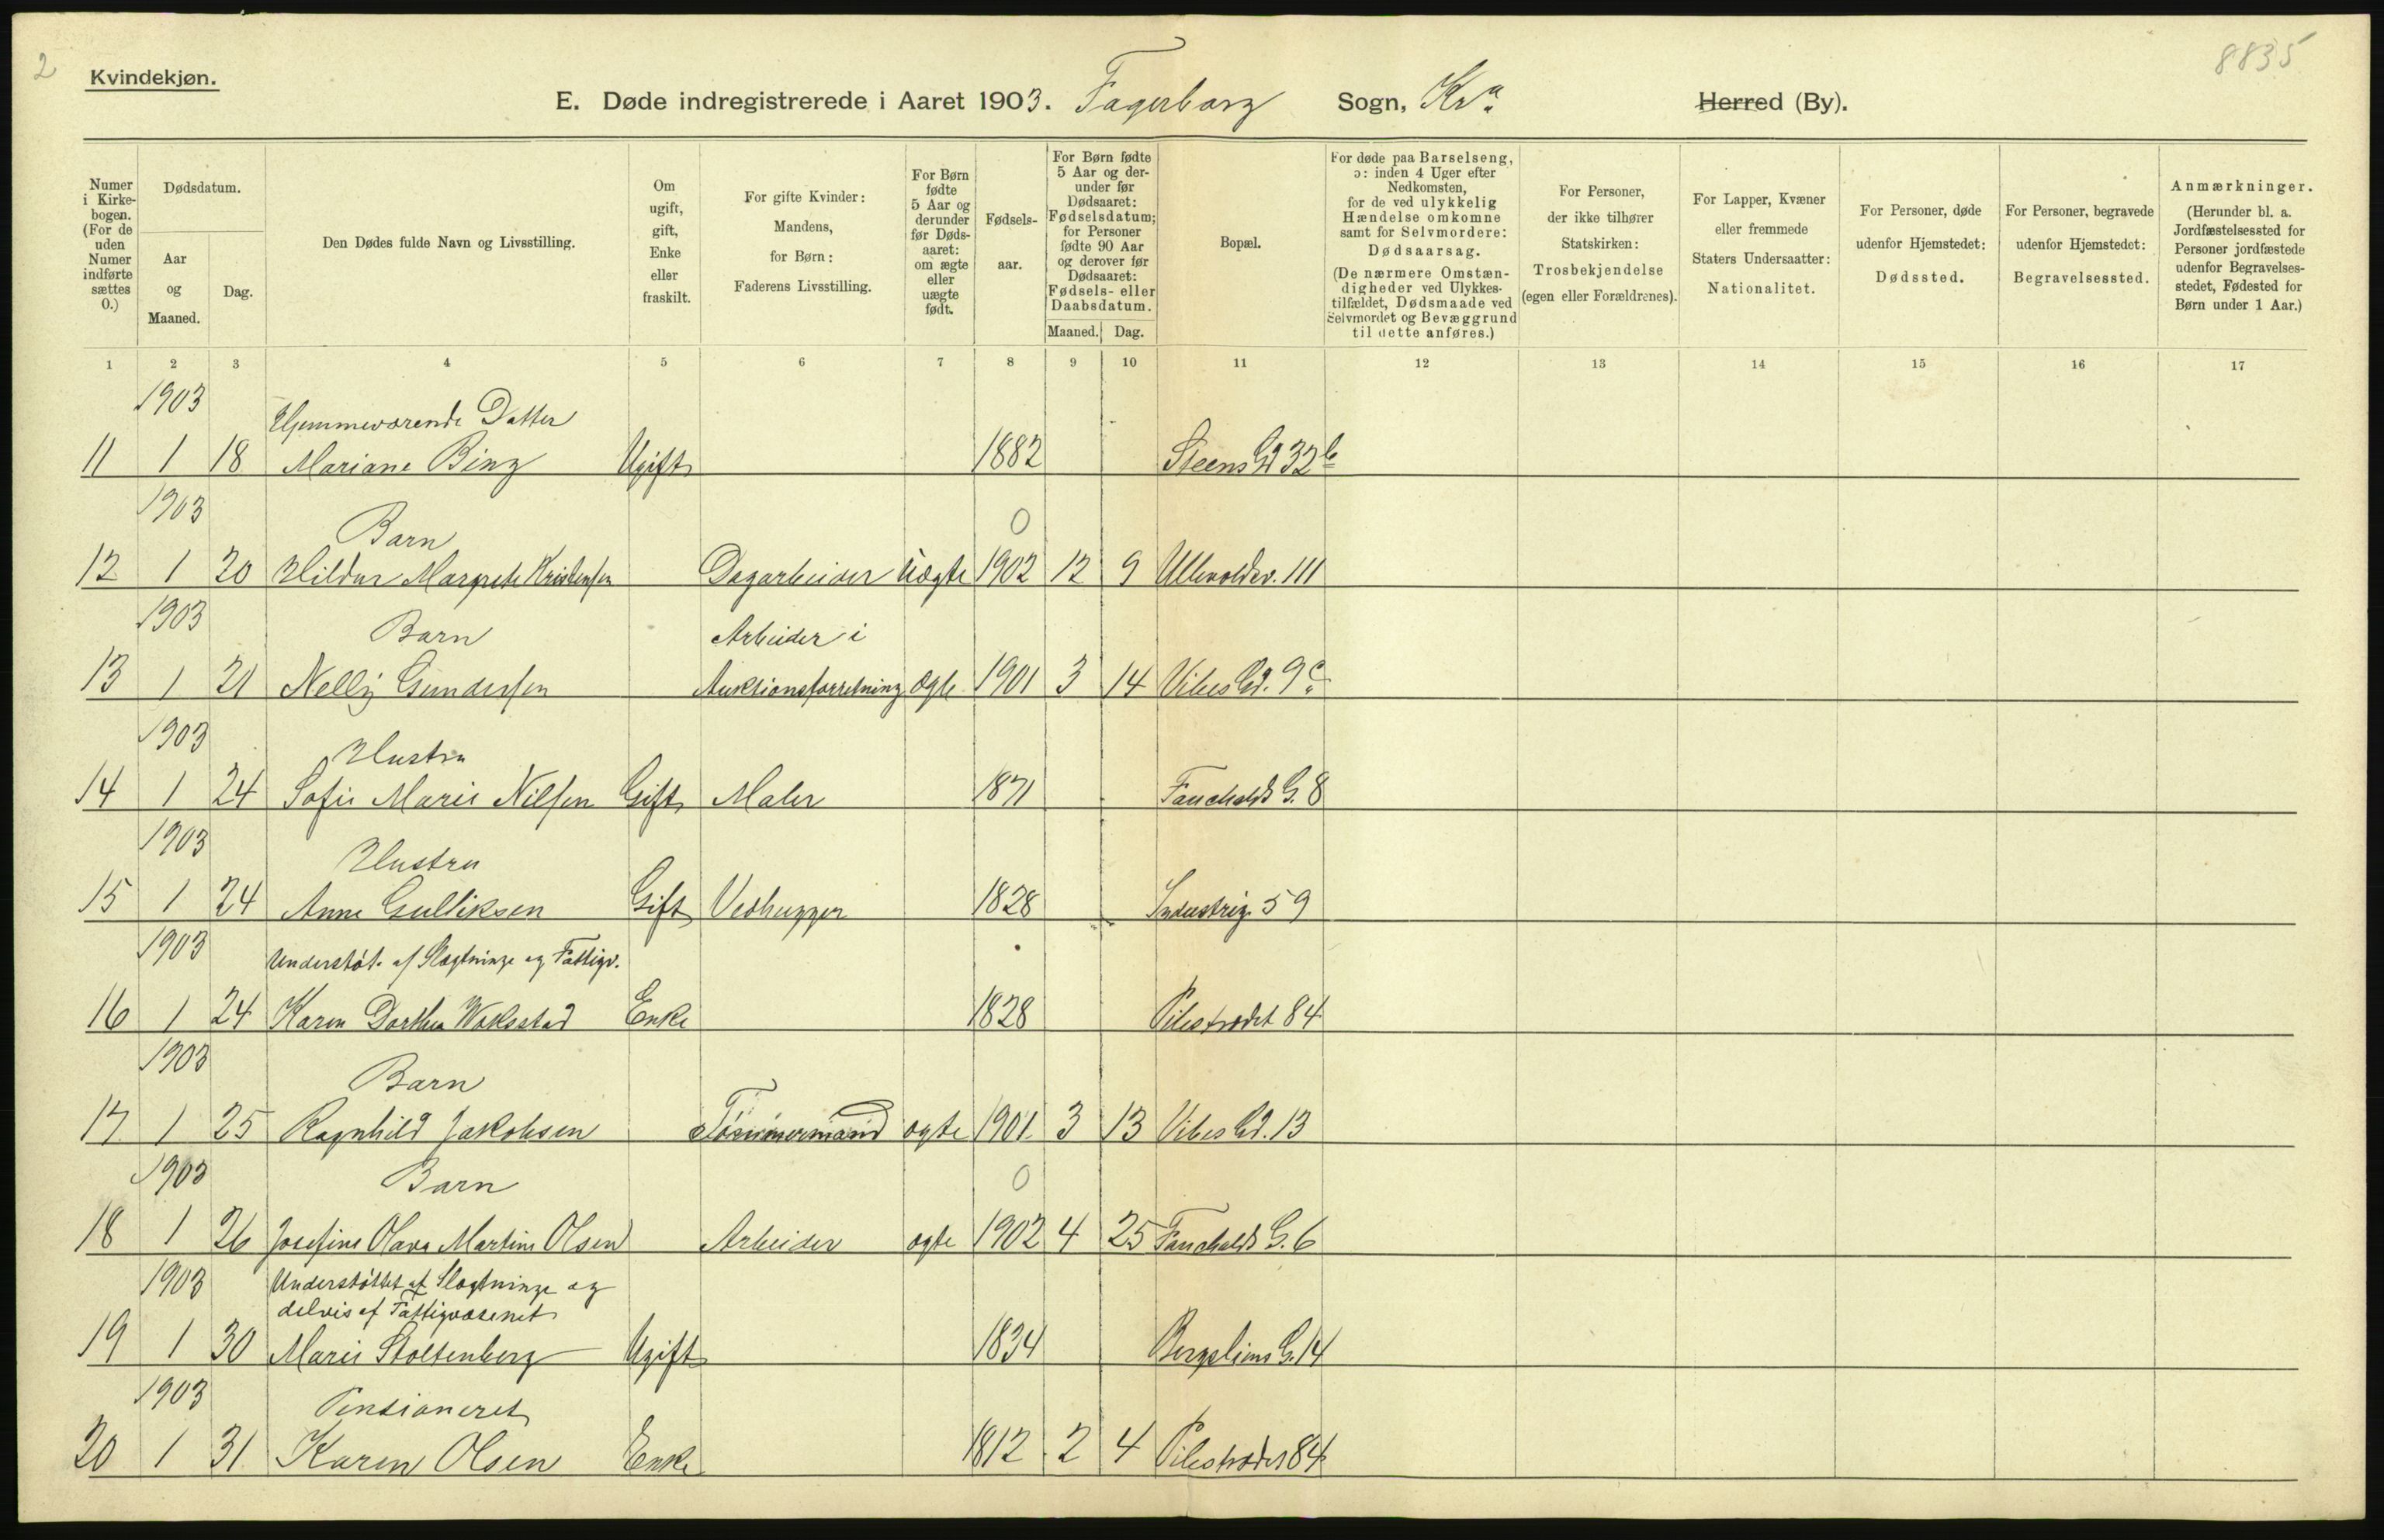 2
Kvindekjøn.
8835
E. Døde indregistrerede i Aaret 1903. Fagerborg Sogn, Kra Herred (By).
Numer i Kirkebogen. (For de uden Numer indførte sættes 0.)
Dødsdatum.
Aar og Maaned.
Dag.
Den Dødes fulde Navn og Livsstilling.
Om ugift, gift, Enke eller fraskilt.
For gifte Kvinder: Mandens, for Børn: Faderens Livsstilling.
For Børn fødte 5 Aar og derunder før Dødsaaret: om ægte eller uægte født.
Fødselsaar.
For Børn fødte 5 Aar og derunder før Dødsaaret: Fødselsdatum; for Personer fødte 90 Aar og derover før Dødsaaret: Fødsels- eller Daabsdatum.
Maaned. Dag.
Bopæl.
For døde paa Barselseng, ɔ: inden 4 Uger efter Nedkomsten, for de ved ulykkelig Hændelse omkomne samt for Selvmordere: Dødsaarsag. (De nærmere Omstændigheder ved Ulykkestilfældet, Dødsmaade ved Selvmordet og Bevæggrund til dette anføres.)
For Personer, der ikke tilhører Statskirken: Trosbekjendelse (egen eller Forældrenes).
For Lapper, Kvæner eller fremmede Staters Undersaatter: Nationalitet.
For Personer, døde udenfor Hjemstedet: Dødssted.
For Personer, begravede udenfor Hjemstedet: Begravelsessted.
Anmærkninger. (Herunder bl. a. Jordfæstelsessted for Personer jordfæstede udenfor Begravelsesstedet, Fødested for Børn under 1 Aar.)
1 2 3 4 5 6 7 8 9 10 11 12 13 14 15 16 17
1903 Hjemmeværende Datter
11 1 18 Mariane Bing Ugift 1882 Steens Gd 32b
1903 Barn 0
12 1 20 Hildur Margrete Kristensen Dagarbeider Uægte 1902 12 9 Ullevoldsv. 111
1903 Barn Arbeider i
13 1 21 Nelly Gundersen Auktionsforretning ægte 1901 3 14 Vibes Gd. 9c
1903 Hustru
14 1 24 Sofie Marie Nilsen Gift Maler 1871 Fauchalds G. 8
1903 Hustru
15 1 24 Anne Gulliksen Gift Vedhugger 1828 Industrig. 59
1903 Understøt. af Slægtninge og Fattigv.
16 1 24 Karen Dorthea Woksstad Enke 1828 Pilestrædet 84
1903 Barn
17 1 25 Ragnhild Jakobsen Tømmermand ægte 1901 3 13 Vibes Gd. 13
1903 Barn 0
18 1 26 Josefine Olava Martine Olsen Arbeider ægte 1902 4 25 Fauchalds G. 6
1903 Understøttet af Slægtninge og
delvis af Fattigvæsenet
19 1 30 Marie Stoltenberg Ugift 1834 Bergsliens G. 14
1903 Pensioneret
20 1 31 Karen Olsen Enke 1812 2 4 Pilestrædet 84